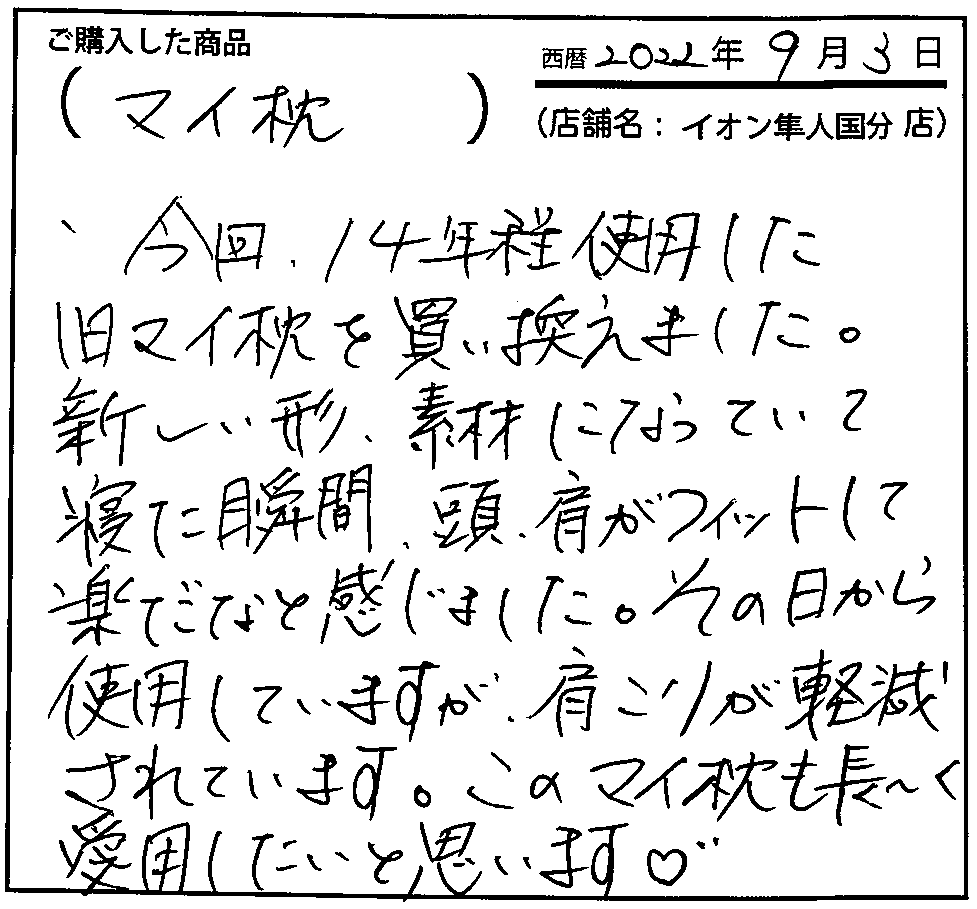 ご購入した商品
西暦 2022年 9月3日
(マイ枕)
(店舗名：イオン隼人国分店)
今回、14年程使用した
旧マイ枕を買い換えました。
新しい形、素材になっていて
寝た瞬間、頭、肩がフィットして
楽だなと感じました。その日から
使用していますが、肩こりが軽減
されています。このマイ枕も長〜く
愛用したいと思います♡